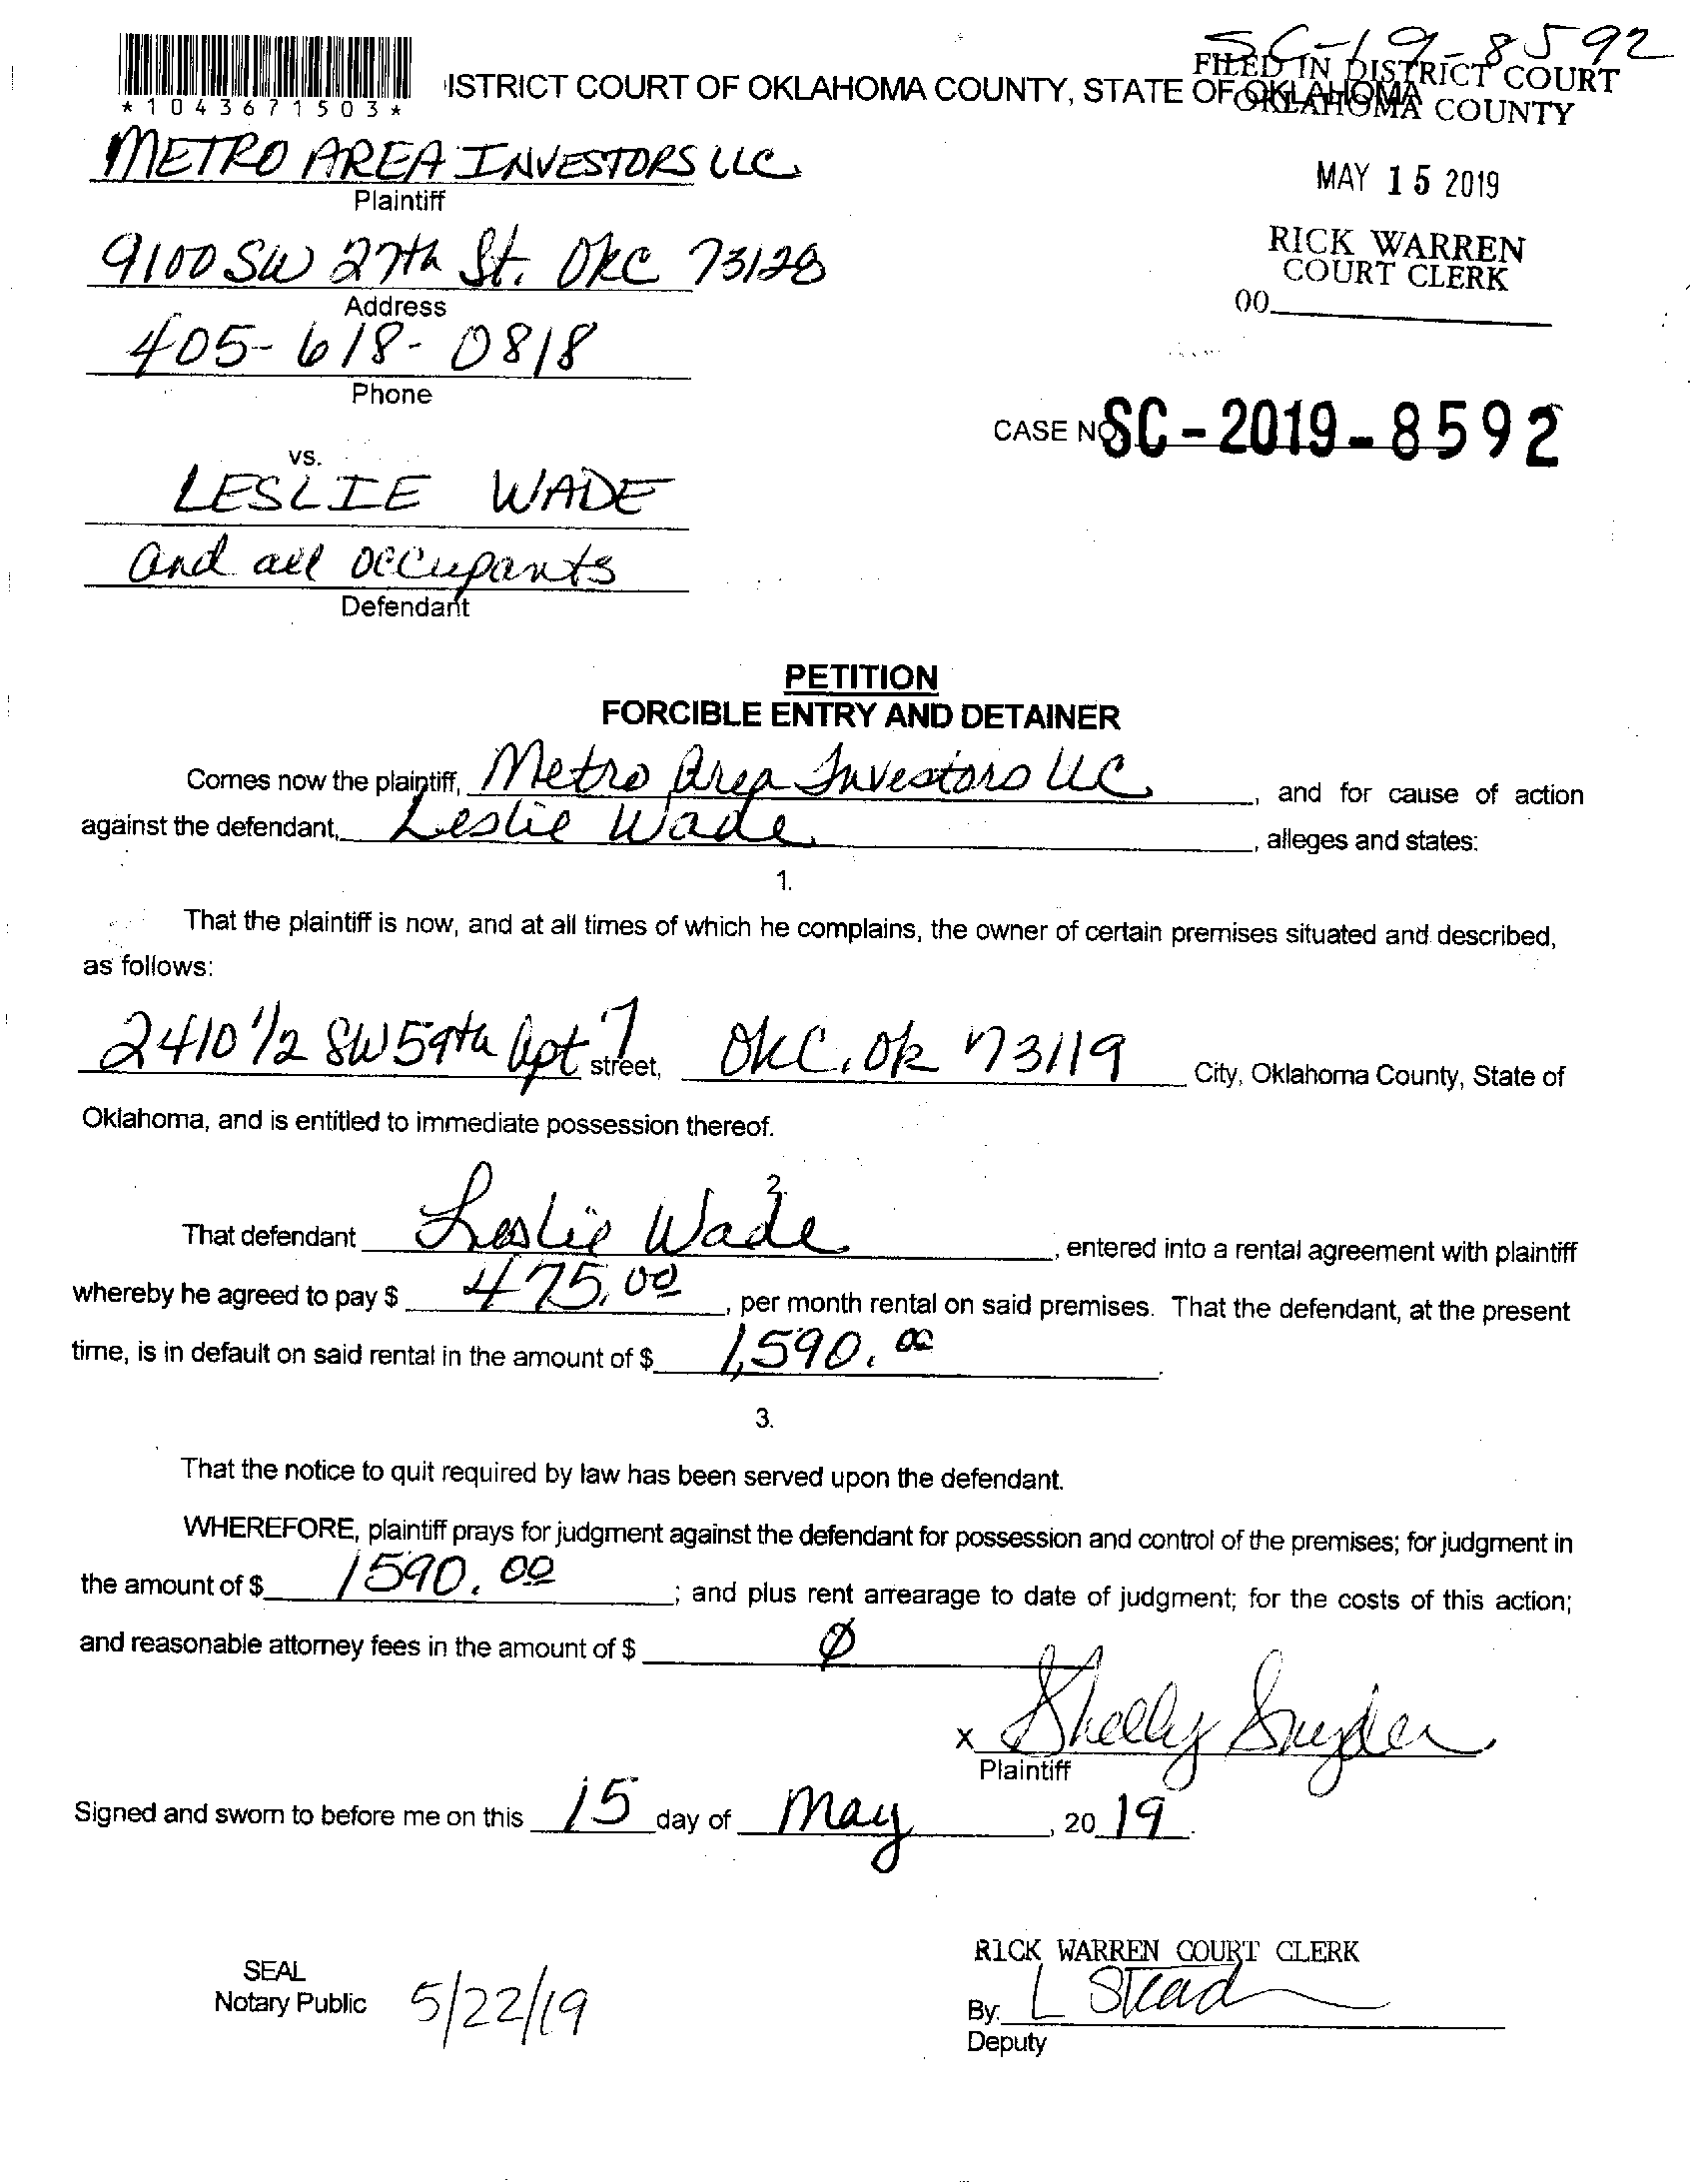 SC-19-8592
*1043671503*
ISTRICT COURT OF OKLAHOMA COUNTY, STATE OF OKLAHOMA
FILED IN DISTRICT COURT
OKLAHOMA COUNTY
METRO AREA INVESTORS LLC
Plaintiff
MAY 15 2019
9100 SW 27th St. OKC 73128
Address
RICK WARREN
COURT CLERK
00
405-618-0818
Phone
CASE NO. SC-2019-8592
vs.
LESLIE WADE
and all occupants
Defendant
PETITION
FORCIBLE ENTRY AND DETAINER
Comes now the plaintiff, Metro Area Investors LLC, and for cause of action
against the defendant, Leslie Wade, alleges and states:
1.
That the plaintiff is now, and at all times of which he complains, the owner of certain premises situated and described,
as follows:
2410 1/2 SW 59th Apt 7 street, OKC, OK 73119 City, Oklahoma County, State of
Oklahoma, and is entitled to immediate possession thereof.
2.
That defendant Leslie Wade, entered into a rental agreement with plaintiff
whereby he agreed to pay $ 475.00, per month rental on said premises. That the defendant, at the present
time, is in default on said rental in the amount of $ 1,590.00.
3.
That the notice to quit required by law has been served upon the defendant.
WHEREFORE, plaintiff prays for judgment against the defendant for possession and control of the premises; for judgment in
the amount of $ 1590.00; and plus rent arrearage to date of judgment; for the costs of this action;
and reasonable attorney fees in the amount of $ Ø
x Shelly Snyder
Plaintiff
Signed and sworn to before me on this 15 day of May, 2019.
RICK WARREN COURT CLERK
SEAL
Notary Public 5/22/19
By: L Stead
Deputy